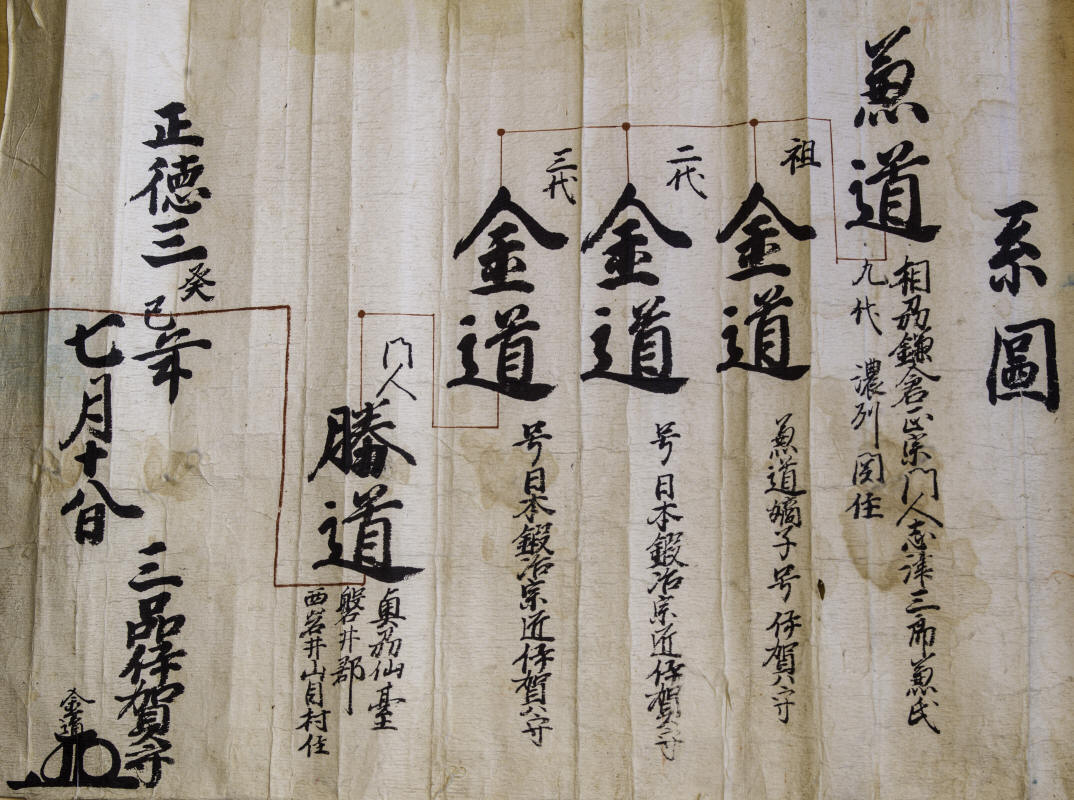 系圖
兼道
相刕鎌倉正宗門人志津三郎兼氏
九代 濃列関住
祖
金道
兼道嫡子号伊賀守
二代
金道
号日本鍛冶宗近伊賀守
三代
金道
号日本鍛冶宗近伊賀守
門人
勝道
奥刕仙臺
磐井郡
西岩井山目村住
正德三癸巳年
七月十八日
三品伊賀守
金道